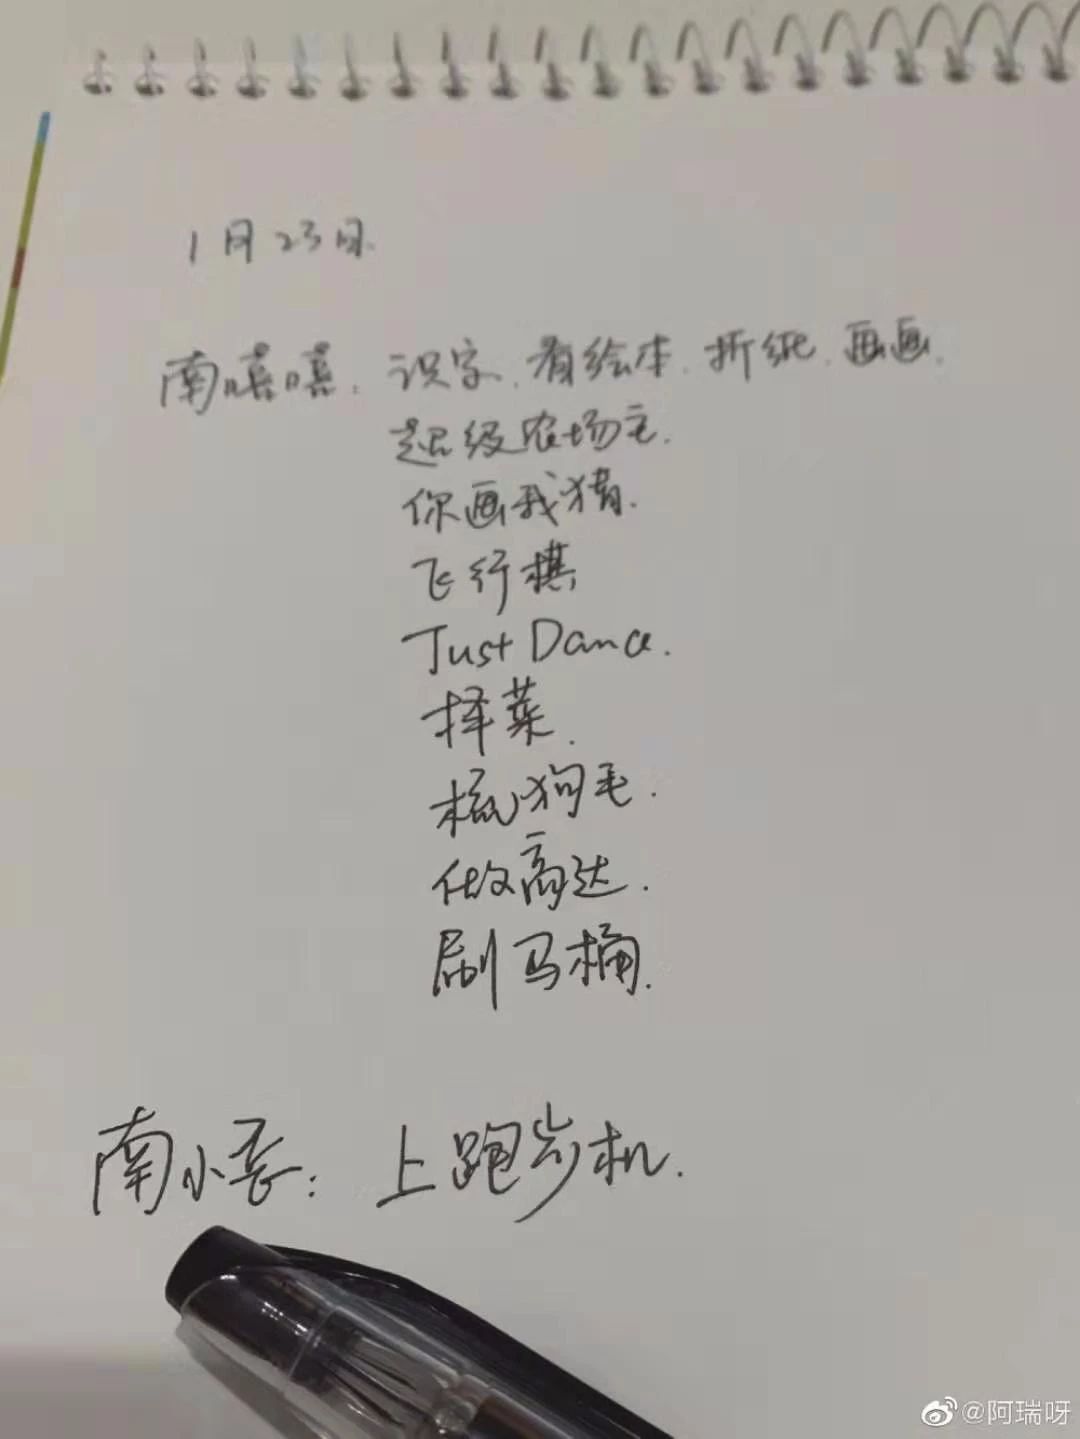 1月23日.
南嘻嘻: 识字. 看绘本. 折纸. 画画.
超级农场主.
你画我猜.
飞行棋
Just Dance.
择菜.
梳狗毛.
做高达.
刷马桶.
南小丢: 上跑步机.
@阿瑞呀